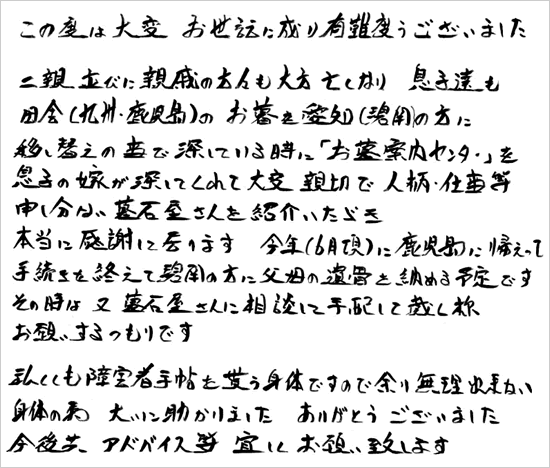 この度は大変 お世話に成り有難度うございました
二親並びに親戚の方々も大方亡くなり 息子達も
田舎(九州・鹿児島)の お墓を愛知(碧南)の方に
移し替えの事で深している時に「お墓案内センター」を
息子の嫁が深してくれて大変 親切で人柄・仕事等
申し分ない墓石屋さんを紹介いただき
本当に感謝して居ります 今年(6月頃)に鹿児島に帰えって
手続きを終えて碧南の方に父母の遺骨を納める予定です
その時は又墓石屋さんに相談して手配して戴く様
お願いするつもりです
私くしも障害者手帖を貰う身体ですので余り無理出来ない
身体の為 大いに助かりました ありがとうございました
今後共、アドバイス等 宜しくお願い致します